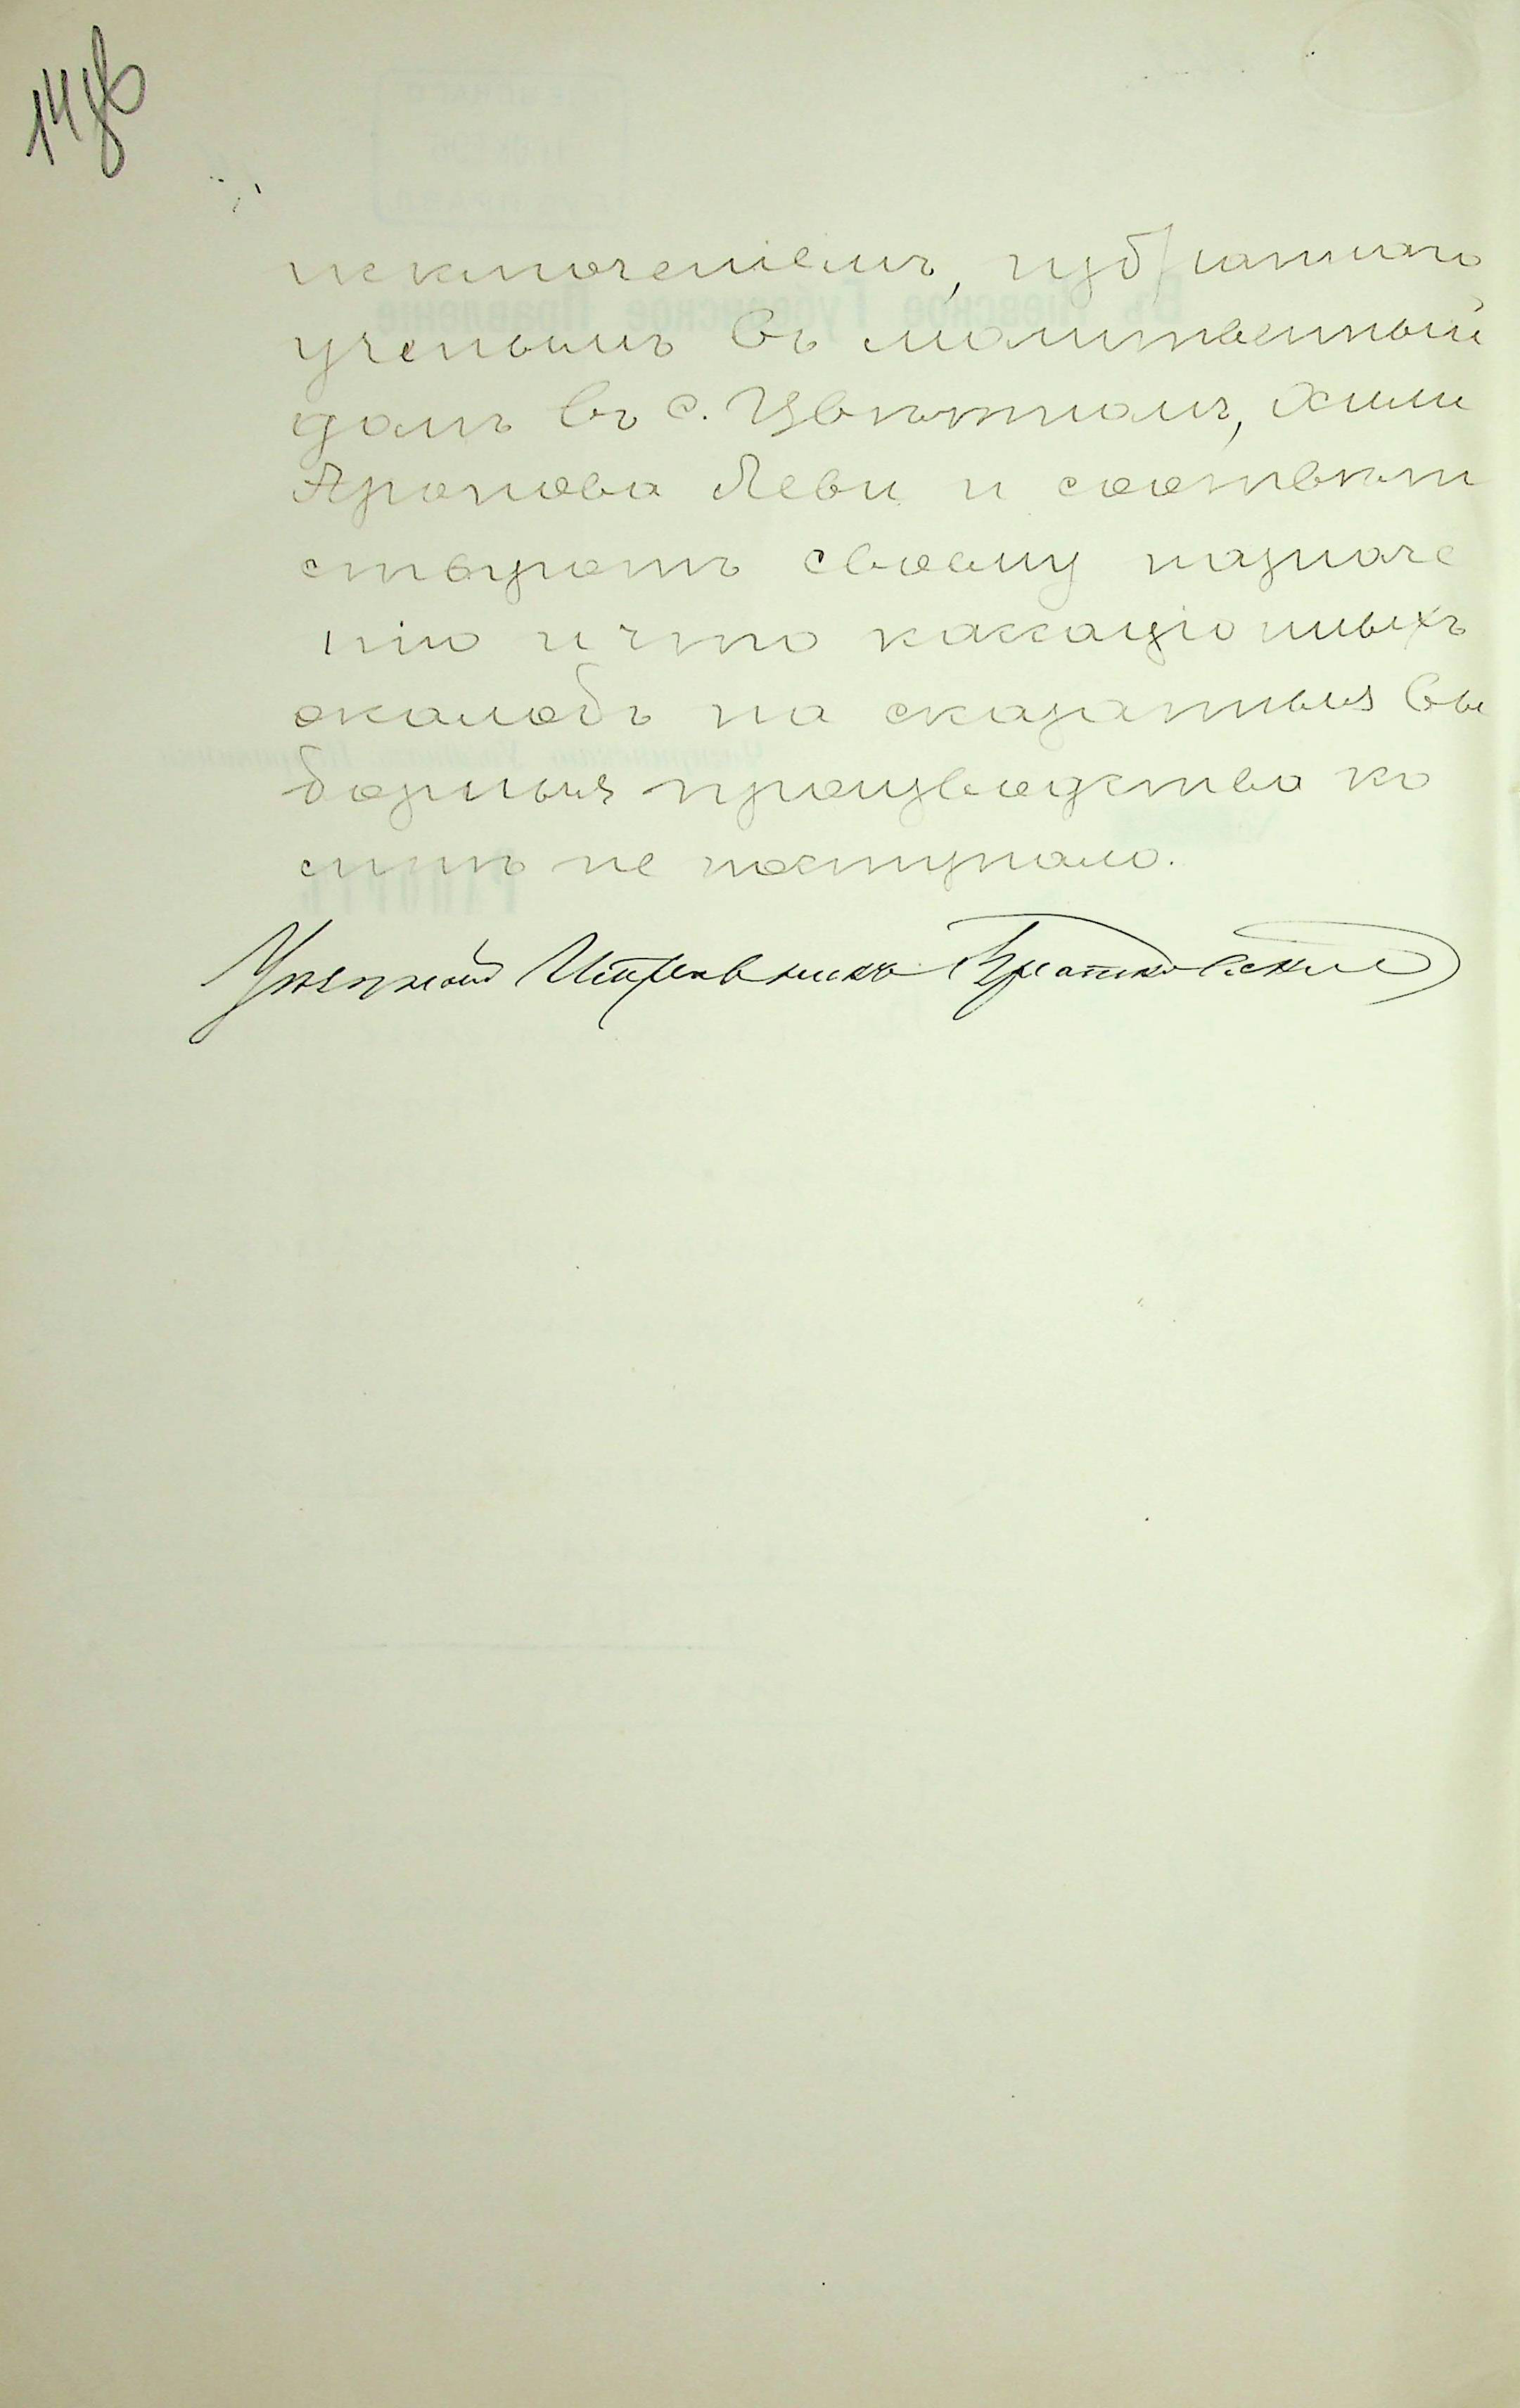 14об
исключеніемъ, избраннаго
ученымъ въ молитвенный
домъ въ с. Цвѣтномъ, Хаима
Аронова Леви и соотвѣт
ствуютъ своему назначе
нію и что кассаціонныхъ
жалобъ на сказанныя вы
борныя производства ко
мнѣ не поступало.
Уѣздный Исправникъ